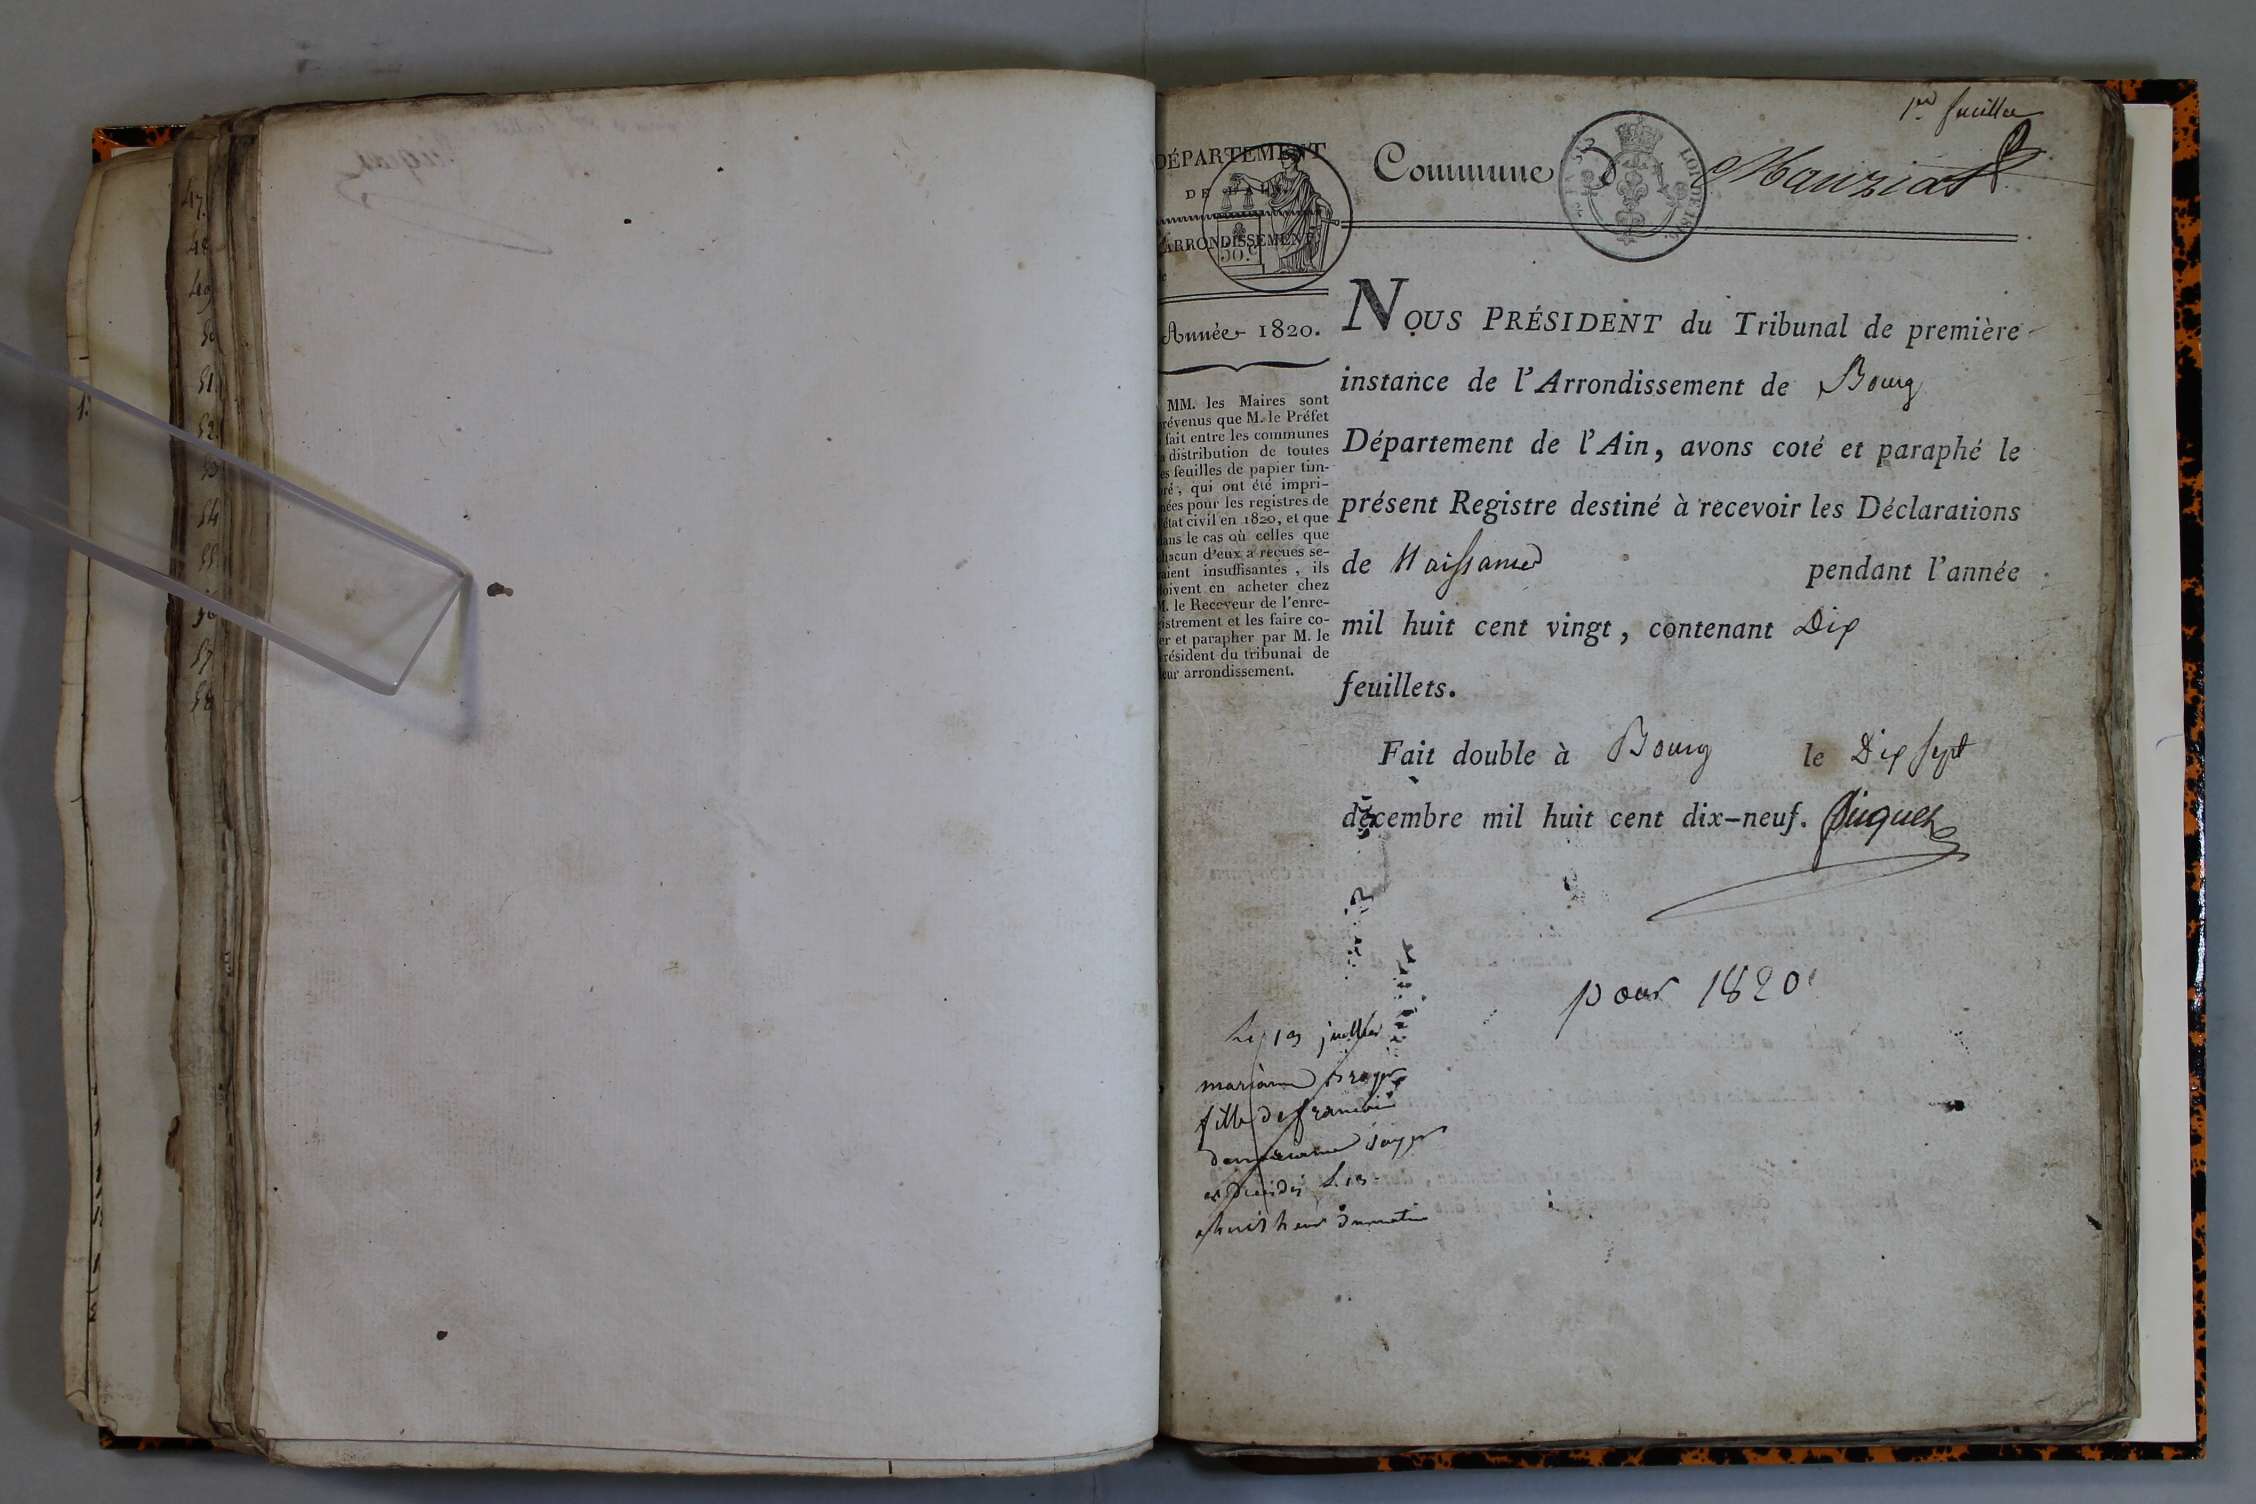 47.
48
49
50
51
52
53
54
55
56
57
58
1er feuillet
DÉPARTEMENT
DE L'AIN.
ARRONDISSEMENT
50.c
Année 1820.
MM. les Maires sont
révenus que M. le Préfet
fait entre les communes
a distribution de toutes
es feuilles de papier tim-
ré, qui ont été impri-
ées pour les registres de
état civil en 1820, et que
ans le cas où celles que
hacun d'eux a reçues se-
aient insuffisantes, ils
doivent en acheter chez
M. le Receveur de l'enre-
istrement et les faire co-
er et parapher par M. le
résident du tribunal de
eur arrondissement.
Commune d Manziat
LOI DE 1816.
NOUS PRÉSIDENT du Tribunal de première
instance de l'Arrondissement de Bourg
Département de l'Ain, avons coté et paraphé le
présent Registre destiné à recevoir les Déclarations
de Naissance pendant l'année
mil huit cent vingt, contenant Dix
feuillets.
Fait double à Bourg le Dix sept
décembre mil huit cent dix-neuf.
pour 1820
Le 13 juillet
marianne
fille de francois
huit heur du matin